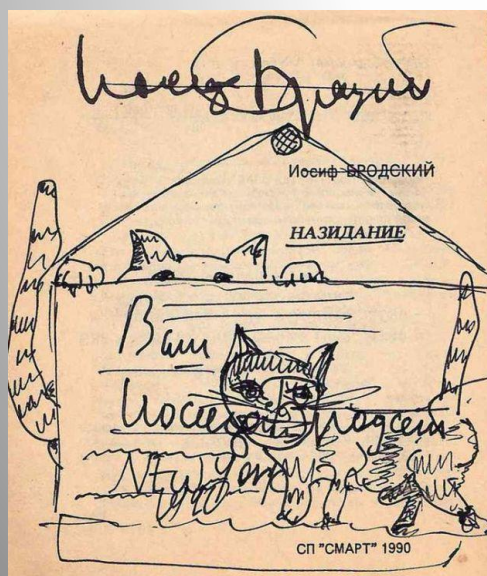 Иосиф Бродский
Иосиф БРОДСКИЙ
НАЗИДАНИЕ
Ваш
Иосиф Бродский
СП "СМАРТ" 1990